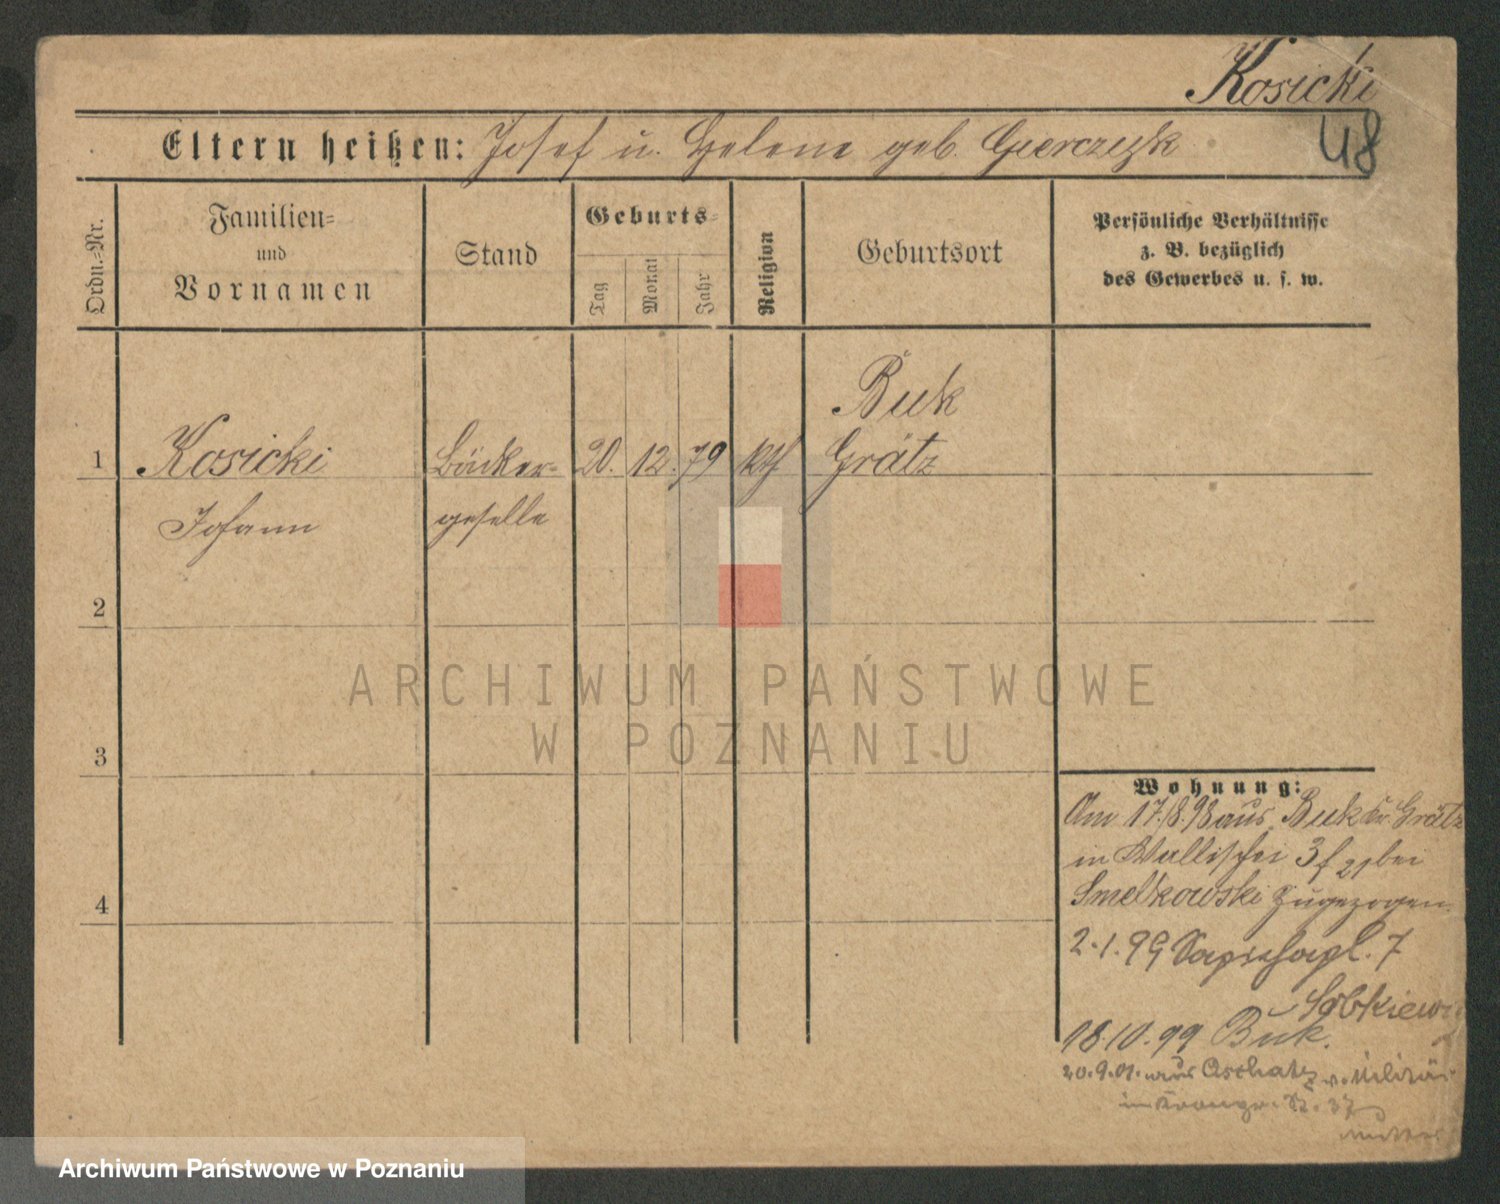 Kosicki
48
Eltern heißen: Josef u. Helene geb. Gierczyk
Ordn.-Nr.
Familien-
und
Vornamen
Stand
Geburts-
Tag
Monat
Jahr
Religion
Geburtsort
Persönliche Verhältnisse
z. B. bezüglich
des Gewerbes u. s. w.
Buk
1 Kosicki Bäcker- 20. 12. 79 kth Grätz
Johann geselle
2
3
4
Wohnung:
Am 17./8.98 aus Buk Kr. Grätz
in Wallischei 3 f 21 bei
Smelkowski zugezogen.
2.1.99 Sapiehapl. 7
18.10.99 Buk.
20.9.01. aus v. Militär
37
Mutter
ARCHIWUM PAŃSTWOWE
W POZNANIU
Archiwum Państwowe w Poznaniu